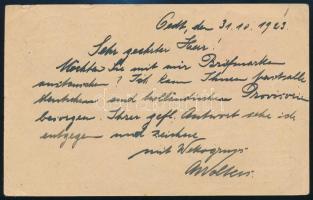 Oedt, den 31.10.1923.
Sehr geehrter Herr!
Möchten Sie mit mir Briefmarken
austauschen? Ich kann Ihnen fast alle
deutschen und holländischen Provisorien
besorgen. Ihrer gefl. Antwort sehe ich
entgegen und zeichne
mit